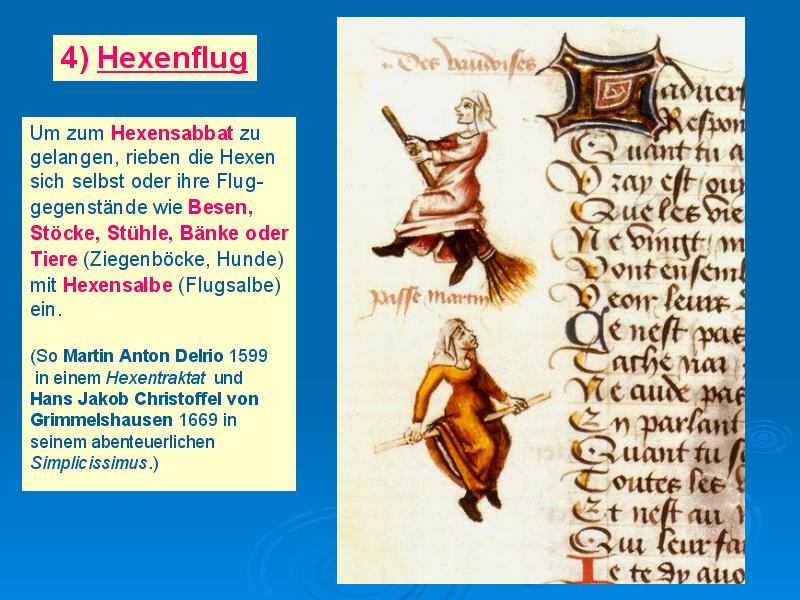 4) Hexenflug
Um zum Hexensabbat zu
gelangen, rieben die Hexen
sich selbst oder ihre Flug-
gegenstände wie Besen,
Stöcke, Stühle, Bänke oder
Tiere (Ziegenböcke, Hunde)
mit Hexensalbe (Flugsalbe)
ein.
(So Martin Anton Delrio 1599
in einem Hexentraktat und
Hans Jakob Christoffel von
Grimmelshausen 1669 in
seinem abenteuerlichen
Simplicissimus.)
Des vaudoises
passe martin
Laduer
Respon
Quant tu a
Vray est
Que les vie
Ne vingt m
Vont ensembl
Veoir leurs
Ce nest pas
Tache
Ne aude pas
En parlant
Quant tu s
Toutes les
Et nest au
Qui leur fa
Je te dy auo